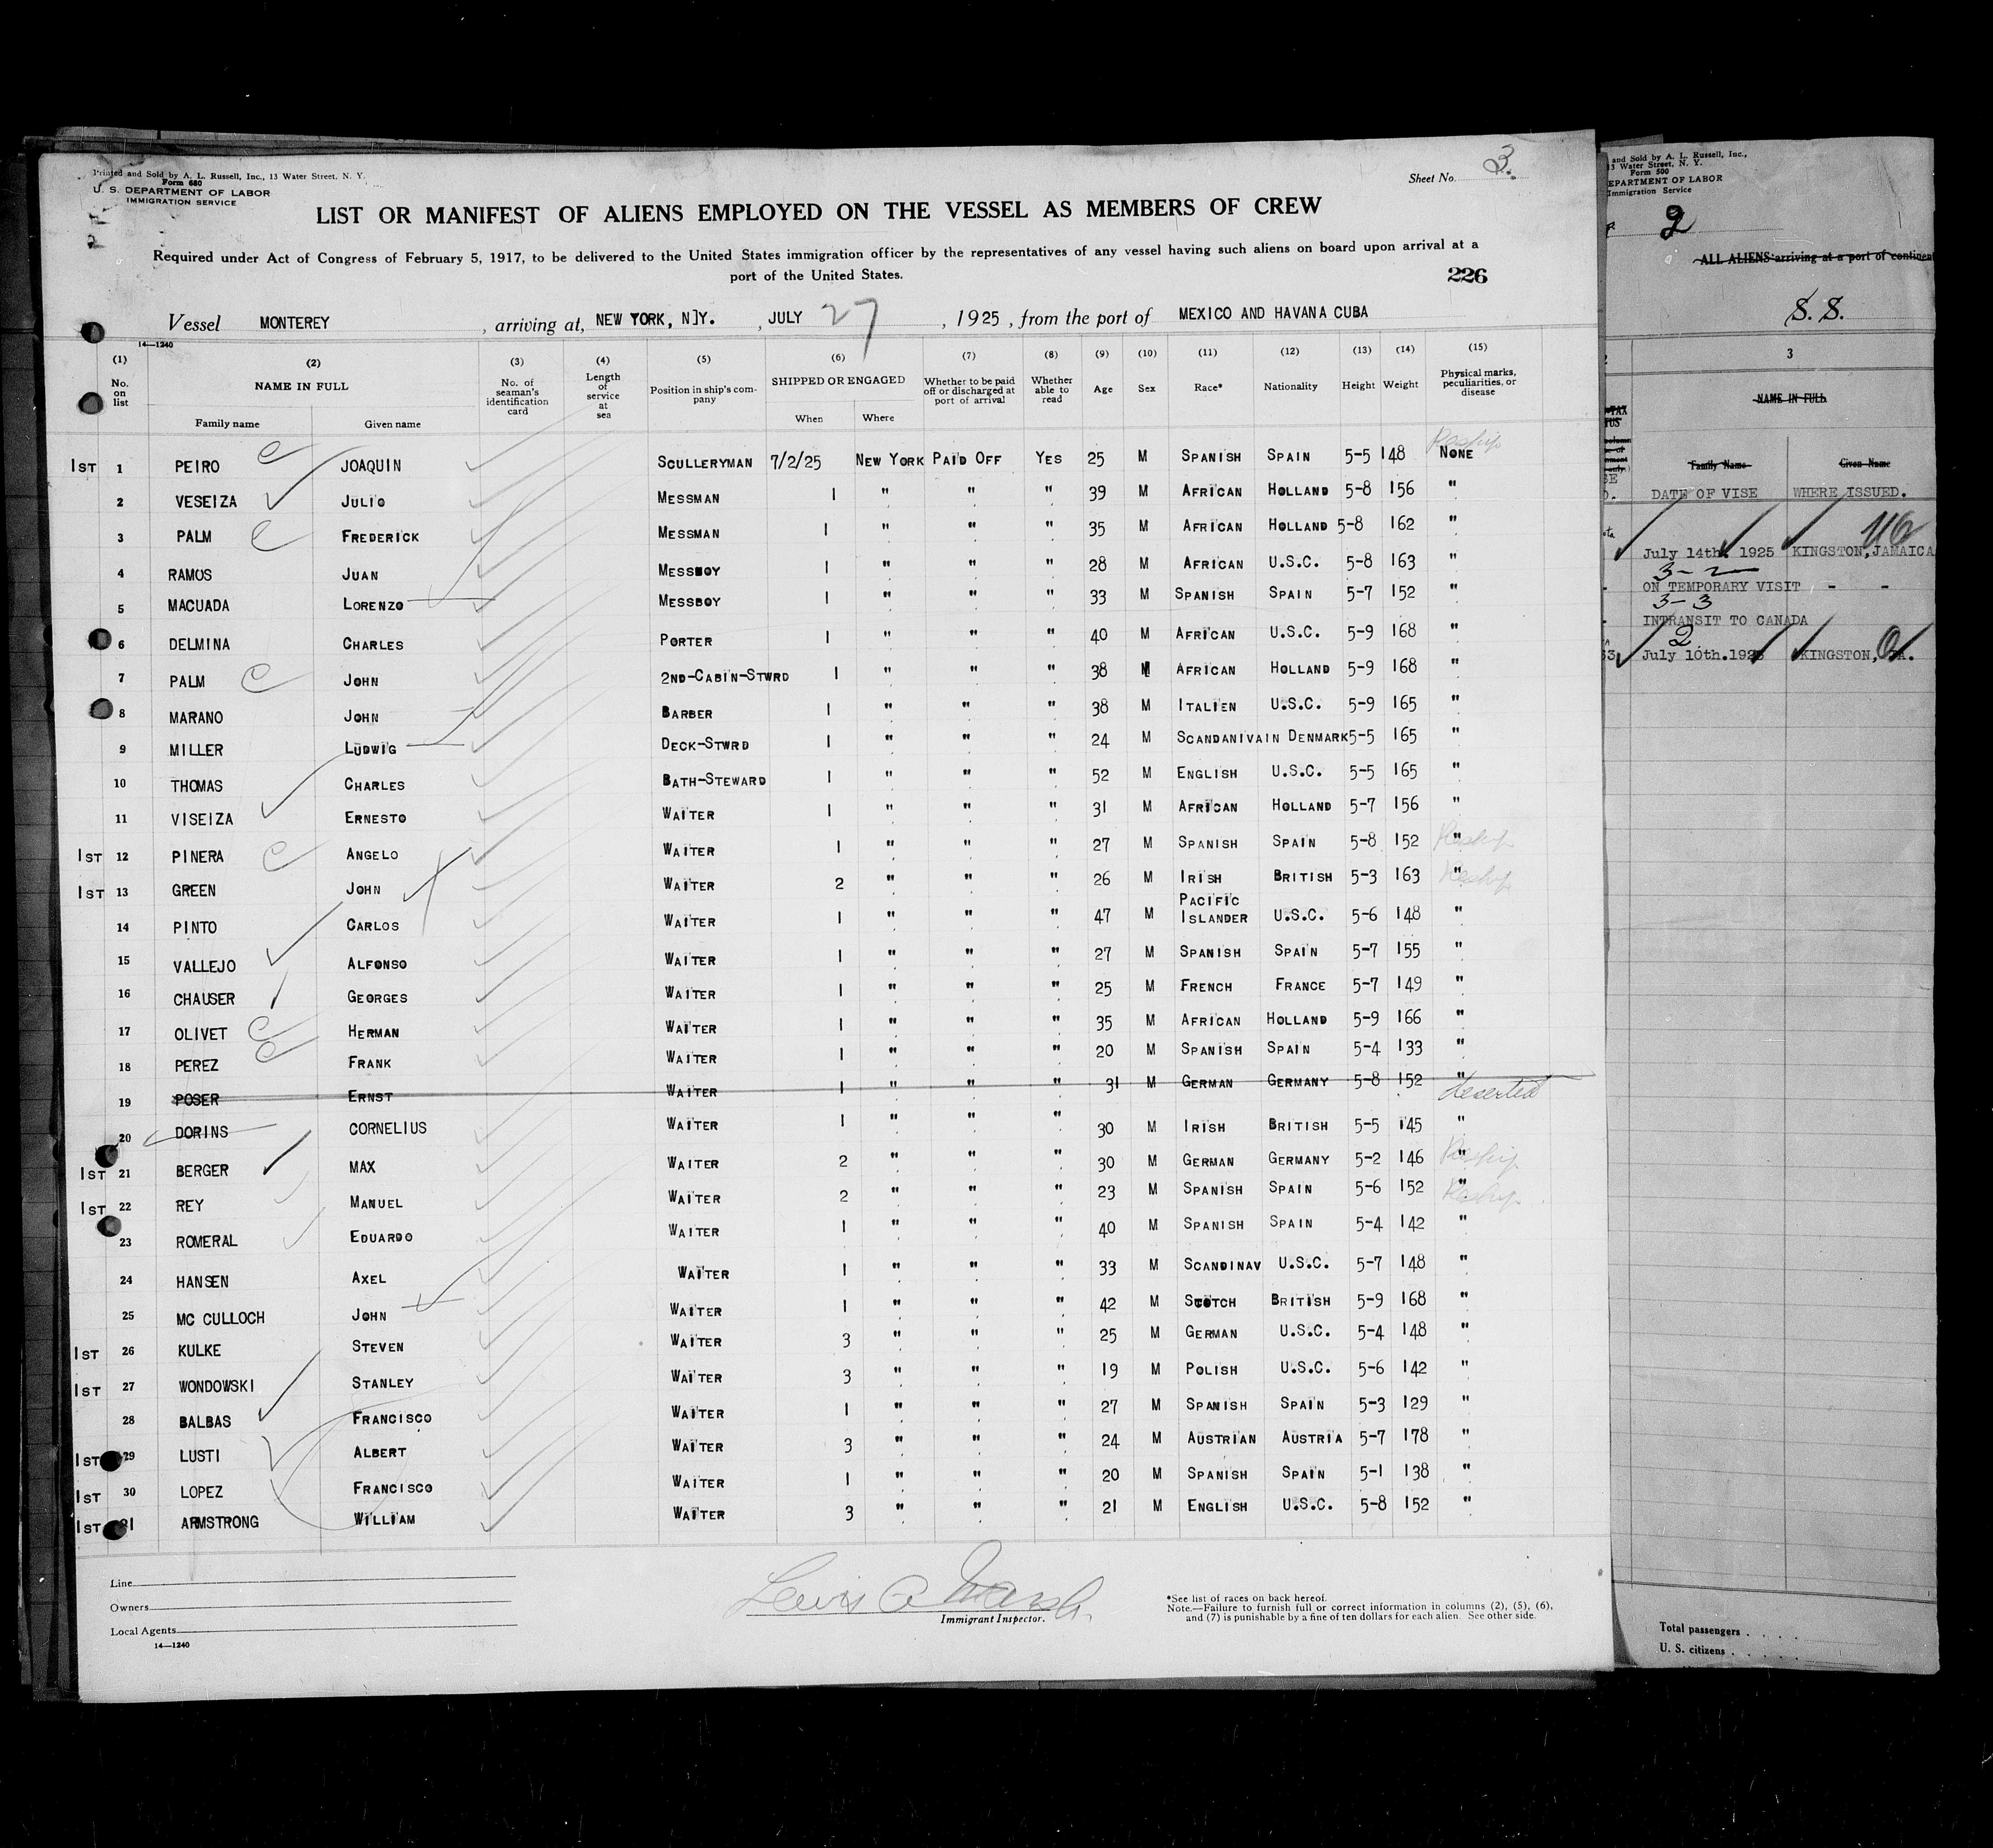 Printed and Sold by A. L. Russell, Inc., 13 Water Street, N. Y.
Form 680
U. S. DEPARTMENT OF LABOR
IMMIGRATION SERVICE
Sheet No. 3.
LIST OR MANIFEST OF ALIENS EMPLOYED ON THE VESSEL AS MEMBERS OF CREW
Required under Act of Congress of February 5, 1917, to be delivered to the United States immigration officer by the representatives of any vessel having such aliens on board upon arrival at a
port of the United States.
226
Vessel MONTEREY, arriving at, NEW YORK, N]Y., JULY 27, 1925, from the port of MEXICO AND HAVANA CUBA
14—1240
(1) (2) (3) (4) (5) (6) (7) (8) (9) (10) (11) (12) (13) (14) (15)
No. on list NAME IN FULL Family name Given name No. of seaman's identification card Length of service at sea Position in ship's company SHIPPED OR ENGAGED When Where Whether to be paid off or discharged at port of arrival Whether able to read Age Sex Race* Nationality Height Weight Physical marks, peculiarities, or disease
Reship
1ST 1 PEIRO C JOAQUIN SCULLERYMAN 7/2/25 NEW YORK PAID OFF YES 25 M SPANISH SPAIN 5-5 148 NONE
2 VESEIZA JULIO MESSMAN 1 " " " 39 M AFRICAN HOLLAND 5-8 156 "
3 PALM C FREDERICK MESSMAN 1 " " " 35 M AFRICAN HOLLAND 5-8 162 "
4 RAMOS JUAN MESSBOY 1 " " " 28 M AFRICAN U.S.C. 5-8 163 "
5 MACUADA LORENZO MESSBOY 1 " " " 33 M SPANISH SPAIN 5-7 152 "
6 DELMINA CHARLES PORTER 1 " " " 40 M AFRICAN U.S.C. 5-9 168 "
7 PALM C JOHN 2ND-CABIN-STWRD 1 " " " 38 M AFRICAN HOLLAND 5-9 168 "
8 MARANO JOHN BARBER 1 " " " 38 M ITALIEN U.S.C. 5-9 165 "
9 MILLER LUDWIG DECK-STWRD 1 " " " 24 M SCANDANIVAIN DENMARK 5-5 165 "
10 THOMAS CHARLES BATH-STEWARD 1 " " " 52 M ENGLISH U.S.C. 5-5 165 "
11 VISEIZA ERNESTO WAITER 1 " " " 31 M AFRICAN HOLLAND 5-7 156 "
1ST 12 PINERA C ANGELO WAITER 1 " " " 27 M SPANISH SPAIN 5-8 152 " Reship
1ST 13 GREEN JOHN WAITER 2 " " " 26 M IRISH BRITISH 5-3 163 " Reship
14 PINTO CARLOS WAITER 1 " " " 47 M PACIFIC ISLANDER U.S.C. 5-6 148 "
15 VALLEJO ALFONSO WAITER 1 " " " 27 M SPANISH SPAIN 5-7 155 "
16 CHAUSER GEORGES WAITER 1 " " " 25 M FRENCH FRANCE 5-7 149 "
17 OLIVET C HERMAN WAITER 1 " " " 35 M AFRICAN HOLLAND 5-9 166 "
18 PEREZ C FRANK WAITER 1 " " " 20 M SPANISH SPAIN 5-4 133 "
19 POSER ERNST WAITER 1 " " " 31 M GERMAN GERMANY 5-8 152 " deserted
20 DORINS CORNELIUS WAITER 1 " " " 30 M IRISH BRITISH 5-5 145 "
1ST 21 BERGER MAX WAITER 2 " " " 30 M GERMAN GERMANY 5-2 146 " Reship
1ST 22 REY MANUEL WAITER 2 " " " 23 M SPANISH SPAIN 5-6 152 " Reship
23 ROMERAL EDUARDO WAITER 1 " " " 40 M SPANISH SPAIN 5-4 142 "
24 HANSEN AXEL WAITER 1 " " " 33 M SCANDINAV U.S.C. 5-7 148 "
25 MC CULLOCH JOHN WAITER 1 " " " 42 M SCOTCH BRITISH 5-9 168 "
1ST 26 KULKE STEVEN WAITER 3 " " " 25 M GERMAN U.S.C. 5-4 148 "
1ST 27 WONDOWSKI STANLEY WAITER 3 " " " 19 M POLISH U.S.C. 5-6 142 "
28 BALBAS FRANCISCO WAITER 1 " " " 27 M SPANISH SPAIN 5-3 129 "
1ST 29 LUSTI ALBERT WAITER 3 " " " 24 M AUSTRIAN AUSTRIA 5-7 178 "
1ST 30 LOPEZ FRANCISCO WAITER 1 " " " 20 M SPANISH SPAIN 5-1 138 "
1ST 31 ARMSTRONG WILLIAM WAITER 3 " " " 21 M ENGLISH U.S.C. 5-8 152 "
Line
Owners
Local Agents
14—1240
Lewis A Marsh
Immigrant Inspector.
*See list of races on back hereof.
Note.—Failure to furnish full or correct information in columns (2), (5), (6),
and (7) is punishable by a fine of ten dollars for each alien. See other side.
and Sold by A. L. Russell, Inc.,
13 Water Street, N. Y.
Form 500
DEPARTMENT OF LABOR
Immigration Service
2
ALL ALIENS arriving at a port of continen
S. S.
3
NAME IN FULL
Family Name Given Name
DATE OF VISE WHERE ISSUED.
July 14th. 1925 KINGSTON, JAMAICA
3-2
ON TEMPORARY VISIT - -
3-3
INTRANSIT TO CANADA
2
July 10th.1925 KINGSTON, JA.
Total passengers
U. S. citizens